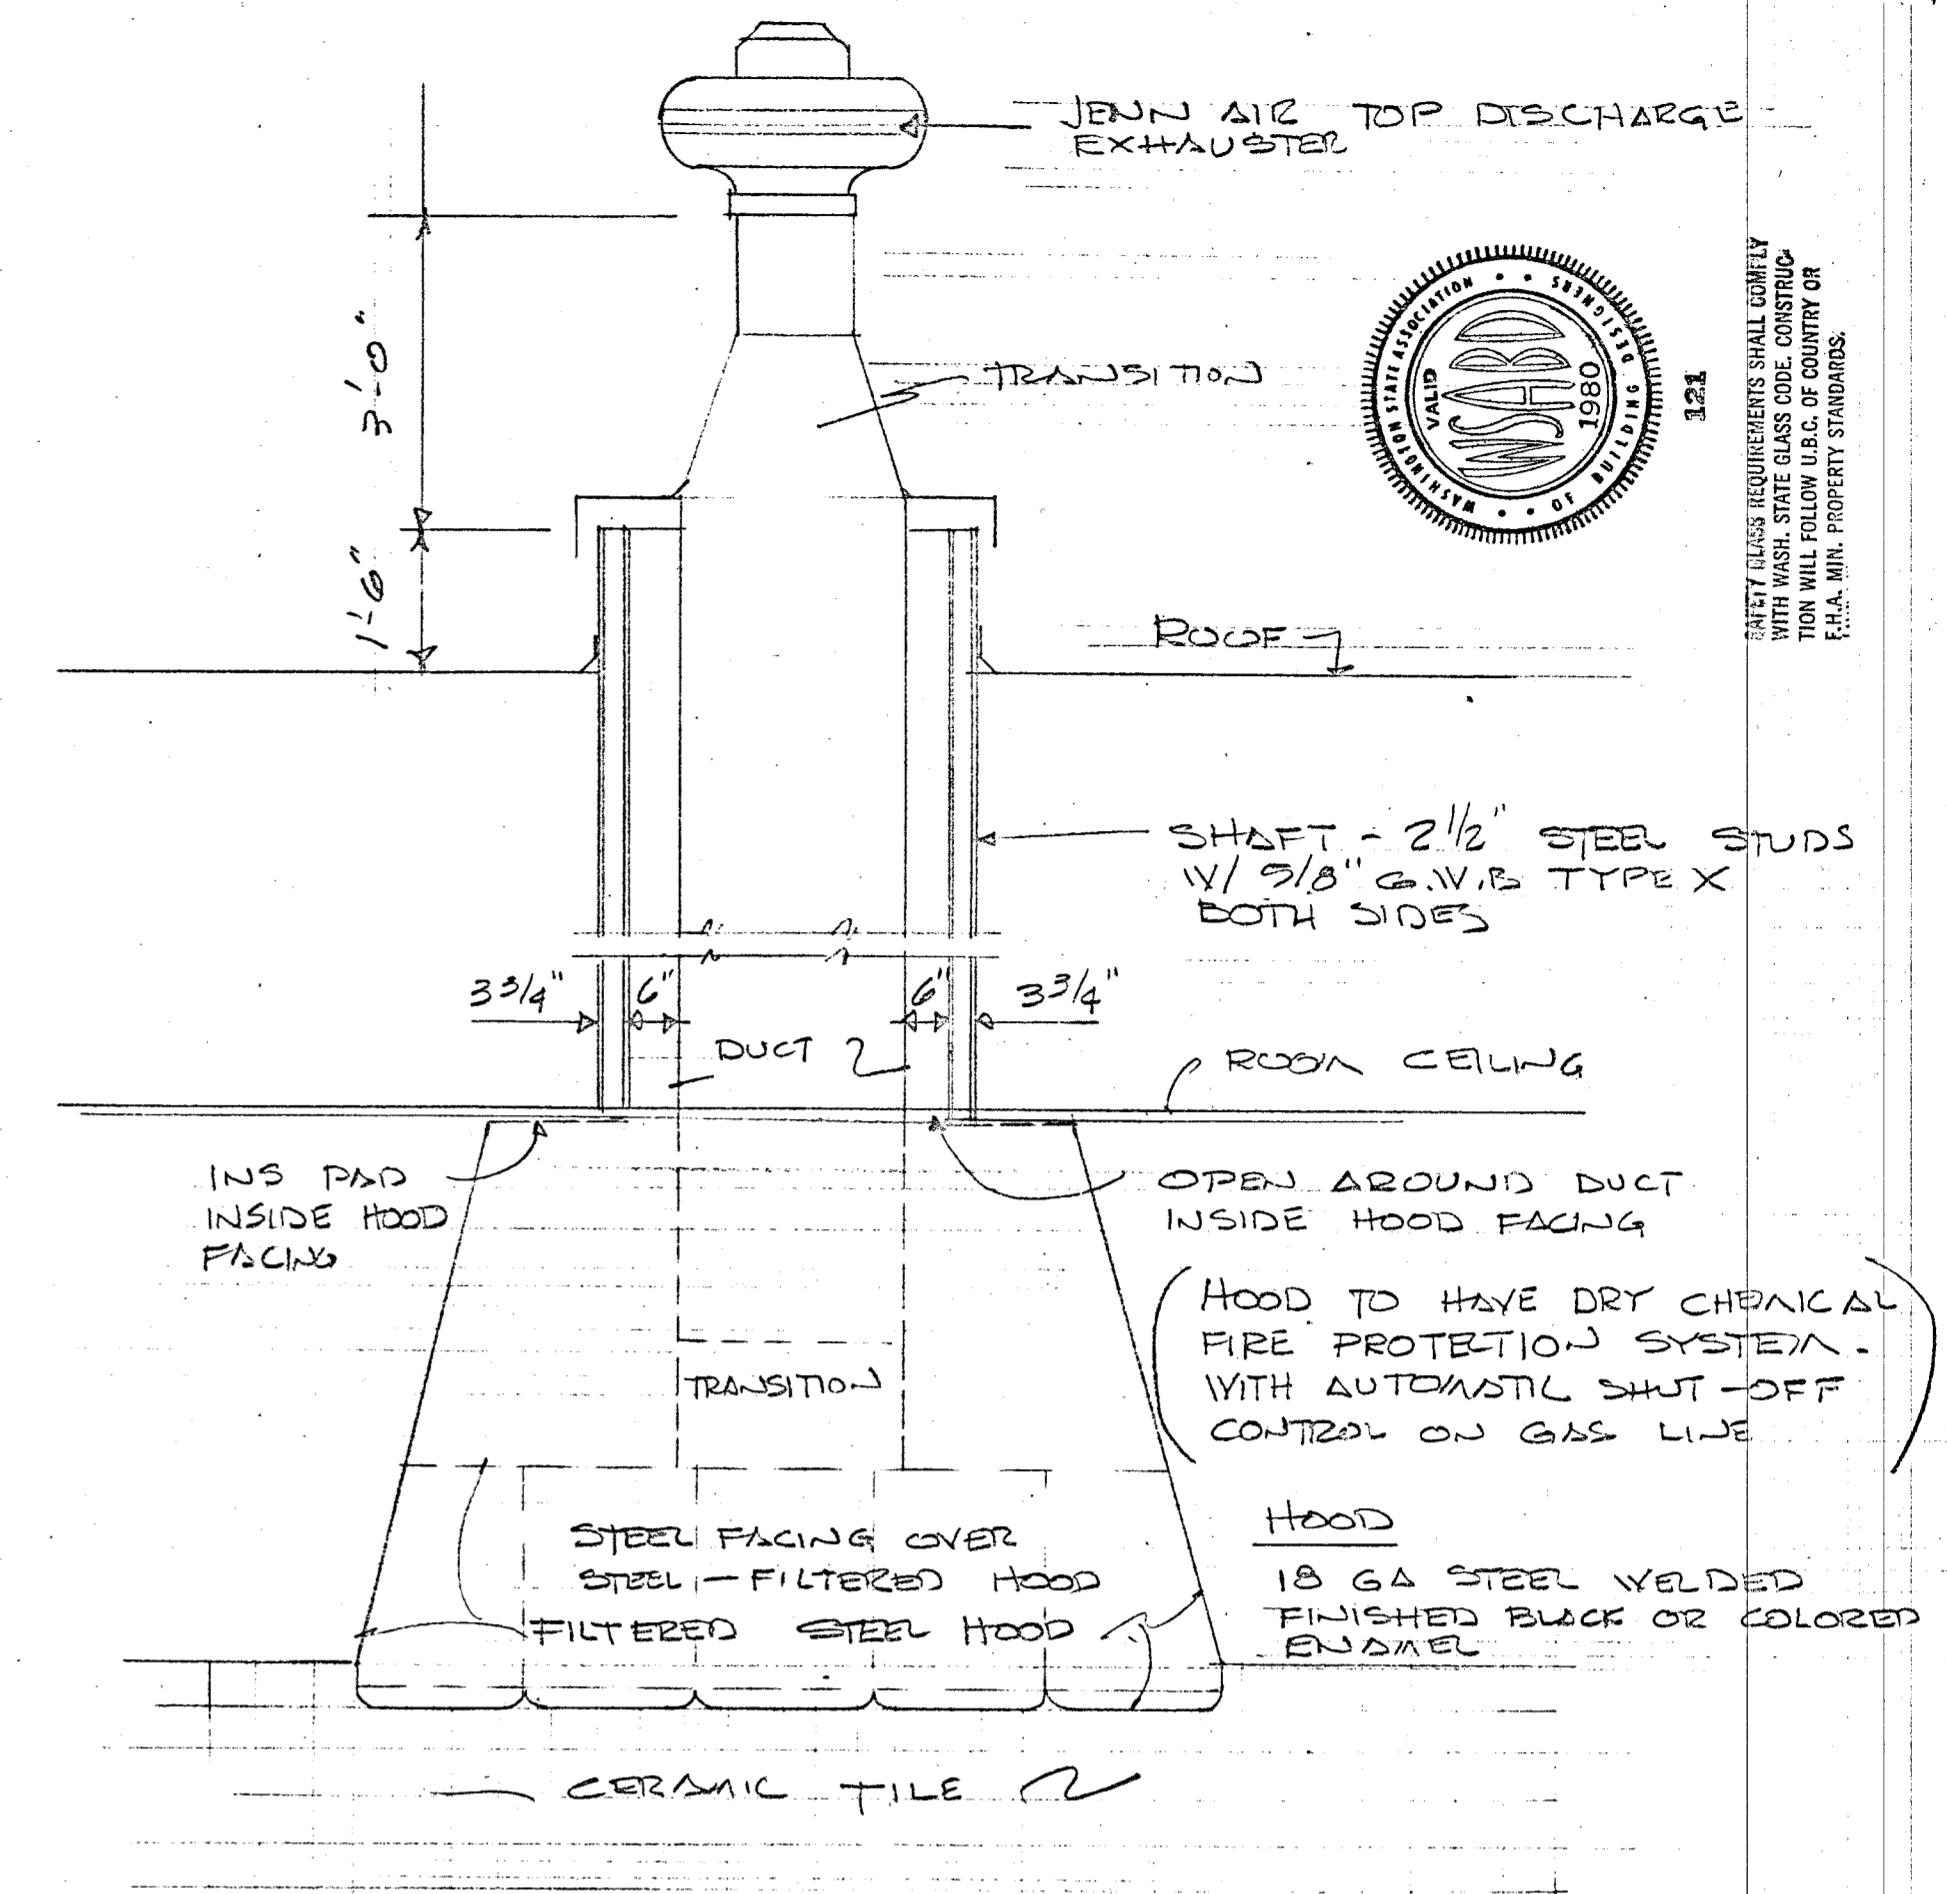 JENN AIR TOP DISCHARGE
EXHAUSTER
3'-0"
TRANSITION
WASHINGTON STATE ASSOCIATION
OF BUILDING DESIGNERS
VALID
WSABD
1980
121
SAFETY GLASS REQUIREMENTS SHALL COMPLY
WITH WASH. STATE GLASS CODE. CONSTRUC-
TION WILL FOLLOW U.B.C. OF COUNTRY OR
F.H.A. MIN. PROPERTY STANDARDS.
1'-6"
ROOF
SHAFT - 2 1/2" STEEL STUDS
W/ 5/8" G.W.B TYPE X
BOTH SIDES
3 3/4" 6" 6" 3 3/4"
DUCT
ROOM CEILING
INS PAD
INSIDE HOOD
FACING
OPEN AROUND DUCT
INSIDE HOOD FACING
(HOOD TO HAVE DRY CHEMICAL
FIRE PROTETION SYSTEM -
WITH AUTOMATIC SHUT-OFF
CONTROL ON GAS LINE)
TRANSITION
STEEL FACING OVER
STEEL - FILTERED HOOD
FILTERED STEEL HOOD
HOOD
18 GA STEEL WELDED
FINISHED BLACK OR COLORED
ENAMEL
CERAMIC TILE